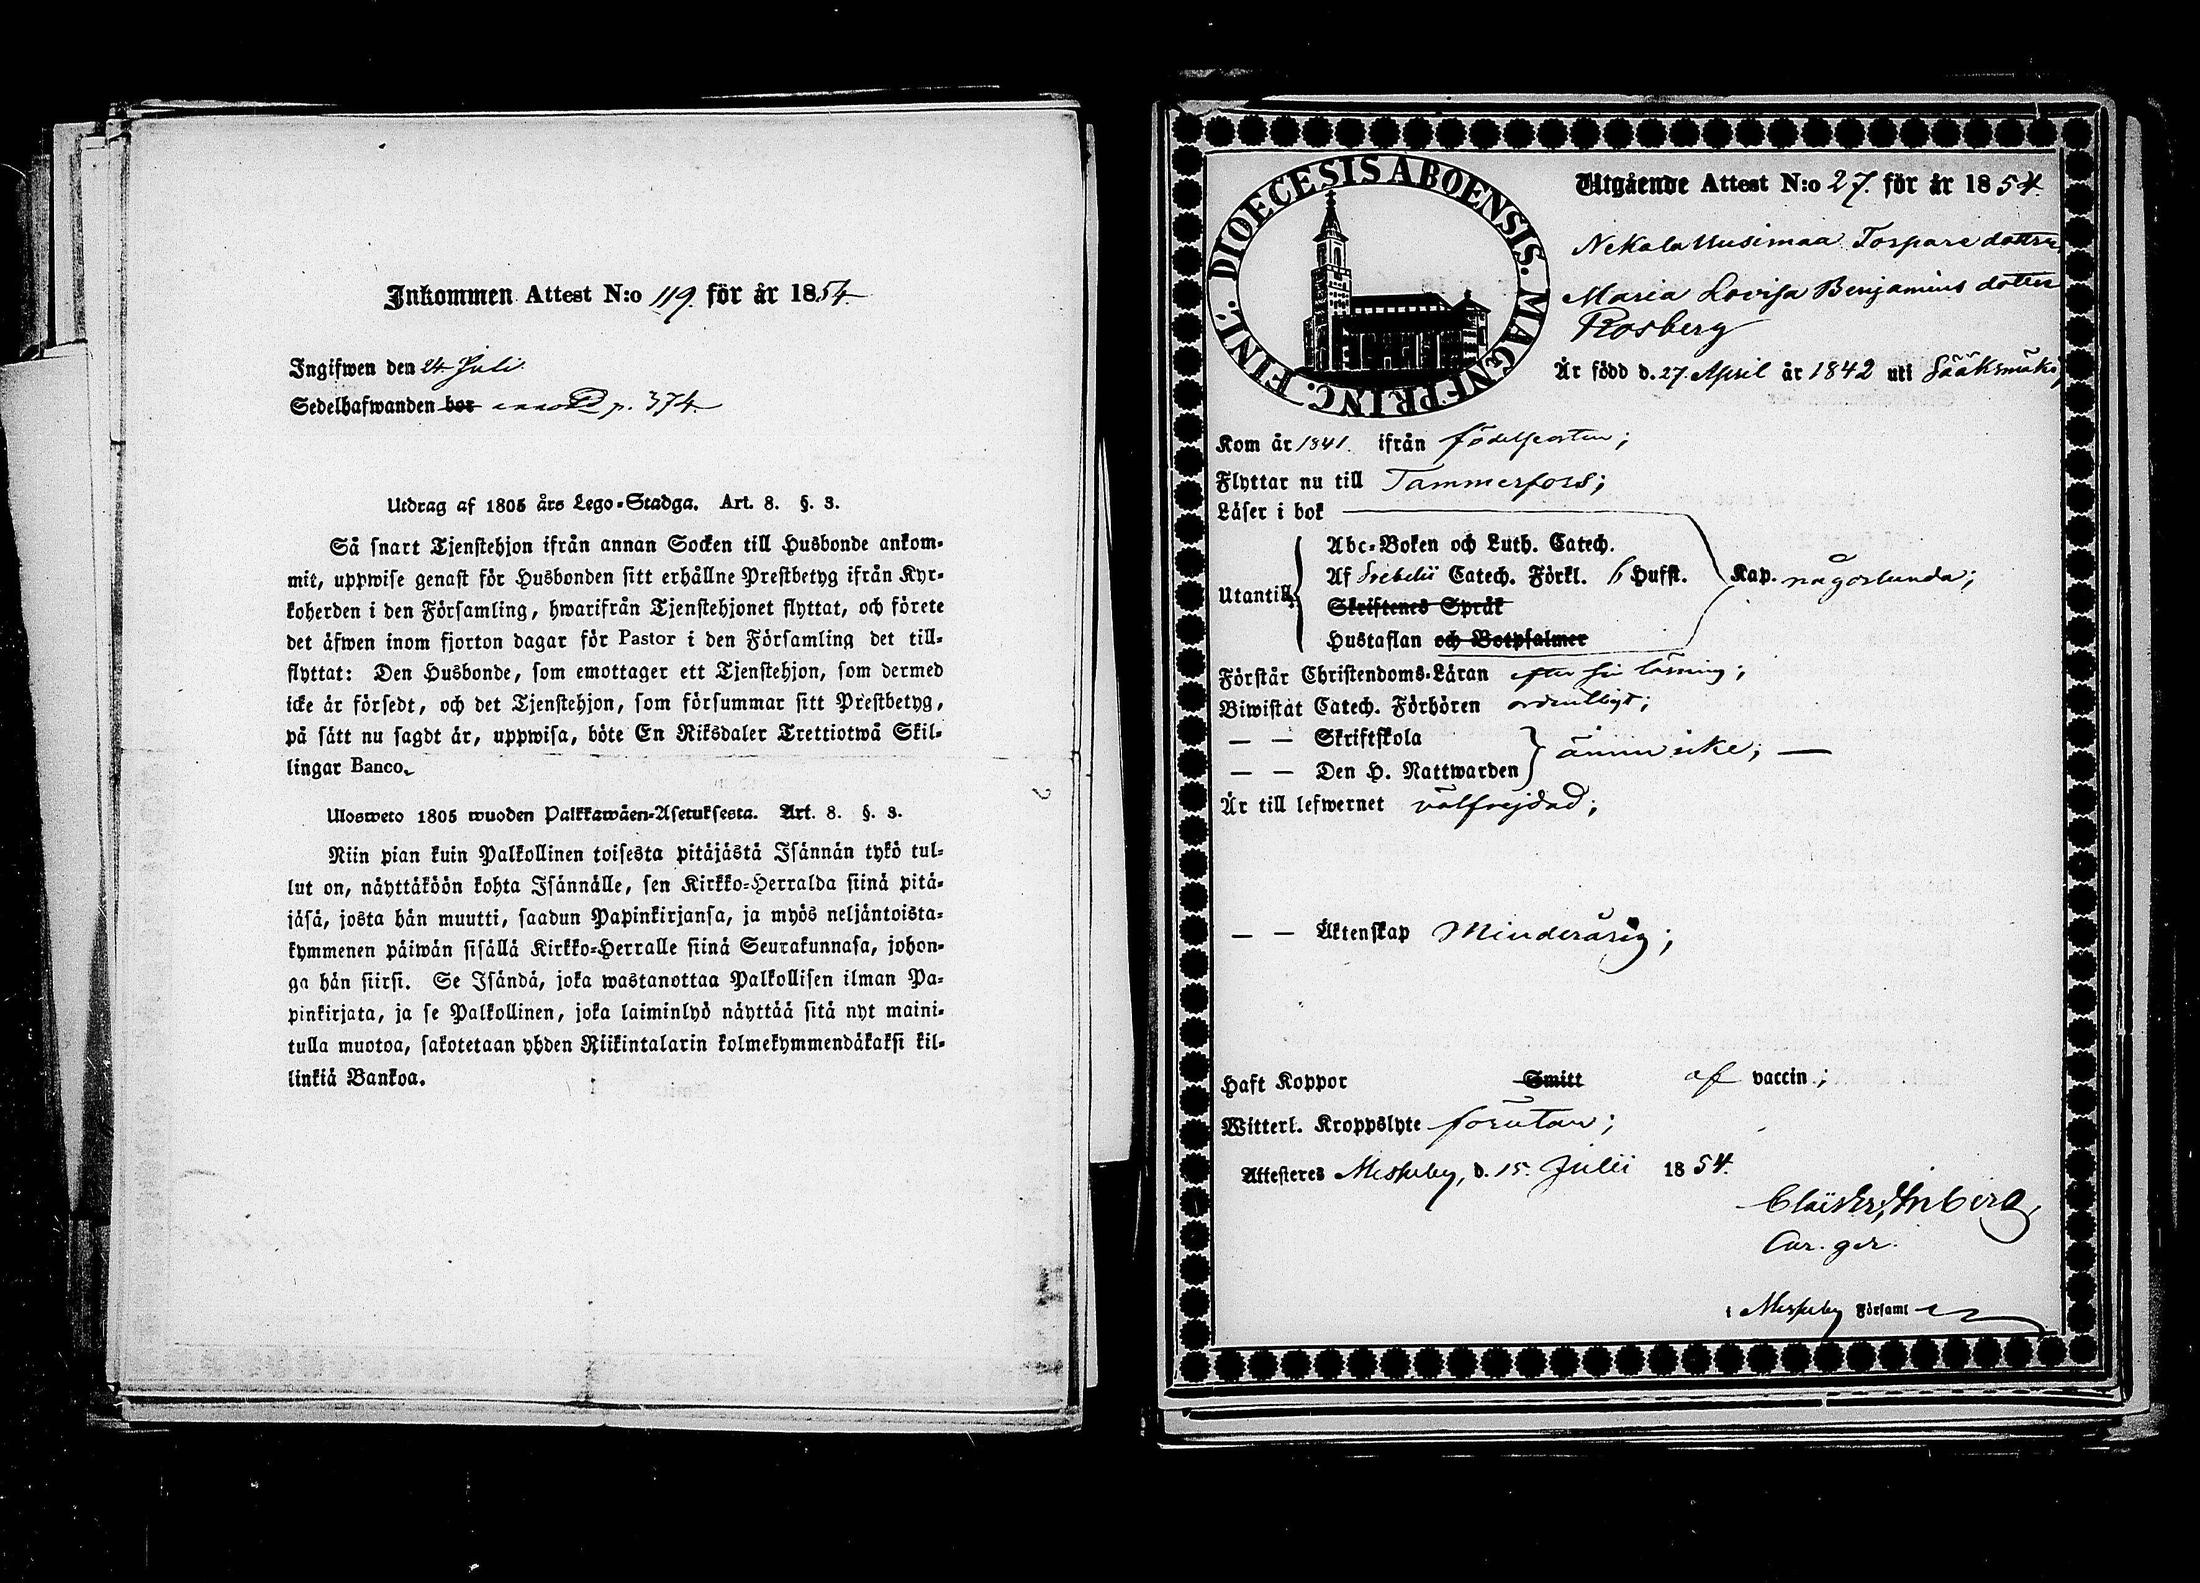 Inkommen Attest N:o 119. för år 1854
Ingifwen den 24 Juli
Sedelhafwanden bor p. 374.
Utdrag af 1805 års Lego-Stadga. Art. 8. §. 3.
Så snart Tjenstehjon ifrån annan Socken till Husbonde ankom-
mit, uppwise genast för Husbonden sitt erhållne Prestbetyg ifrån Kyr-
koherden i den Församling, hwarifrån Tjenstehjonet flyttat, och förete
det äfwen inom fjorton dagar för Pastor i den Församling det till-
flyttat: Den Husbonde, som emottager ett Tjenstehjon, som dermed
icke är försedt, och det Tjenstehjon, som försummar sitt Prestbetyg,
på sätt nu sagdt är, uppwisa, böte En Riksdaler Trettiotwå Skil-
lingar Banco.
Ulosweto 1805 wuoden Palkkawäen-Asetuksesta. Art. 8. §. 3.
Niin pian kuin Palkollinen toisesta pitäjästä Isännän tykö tul-
lut on, näyttäköön kohta Isännälle, sen Kirkko-Herralda siinä pitä-
jäsä, josta hän muutti, saadun Papinkirjansa, ja myös neljäntoista-
kymmenen päiwän sisällä Kirkko-Herralle siinä Seurakunnasa, johon-
ga hän siirsi. Se Isändä, joka wastanottaa Palkollisen ilman Pa-
pinkirjata, ja se Palkollinen, joka laiminlyö näyttää sitä nyt maini-
tulla muotoa, sakotetaan yhden Riikintalarin kolmekymmendäkaksi kil-
linkiä Bankoa.
DIOECESIS ABOENSIS. MAGNI PRINC. FINL.
Utgående Attest N:o 27. för år 1854.
Nekala Uusimaa Torpare dotter
Maria Lovisa Benjamins dotter
Rosberg
Är född d. 27. April år 1842 uti Sääksmäki,
Kom år 1841. ifrån födelseorten;
Flyttar nu till Tammerfors;
Läser i bok
Utantill
Abc-Boken och Luth. Catech.
Af Svebelii Catech. Förkl. 6 Hufst. Kap. någorlunda;
Skriftenes Språk
Hustaflan och Botpsalmer
Förstår Christendoms-Läran efter sin läsning;
Biwistat Catech. Förhören ordentligt;
— — Skriftskola
— — Den H. Nattwarden ännu icke; —
Är till lefwernet välfrejdad;
— — Äktenskap Minderårig;
Haft Koppor Smitt af vaccin;
Witterl. Kroppslyte förutan;
Attesteres Messuby, d. 15. Julii 1854.
Cur. ger.
i Messuby Församl